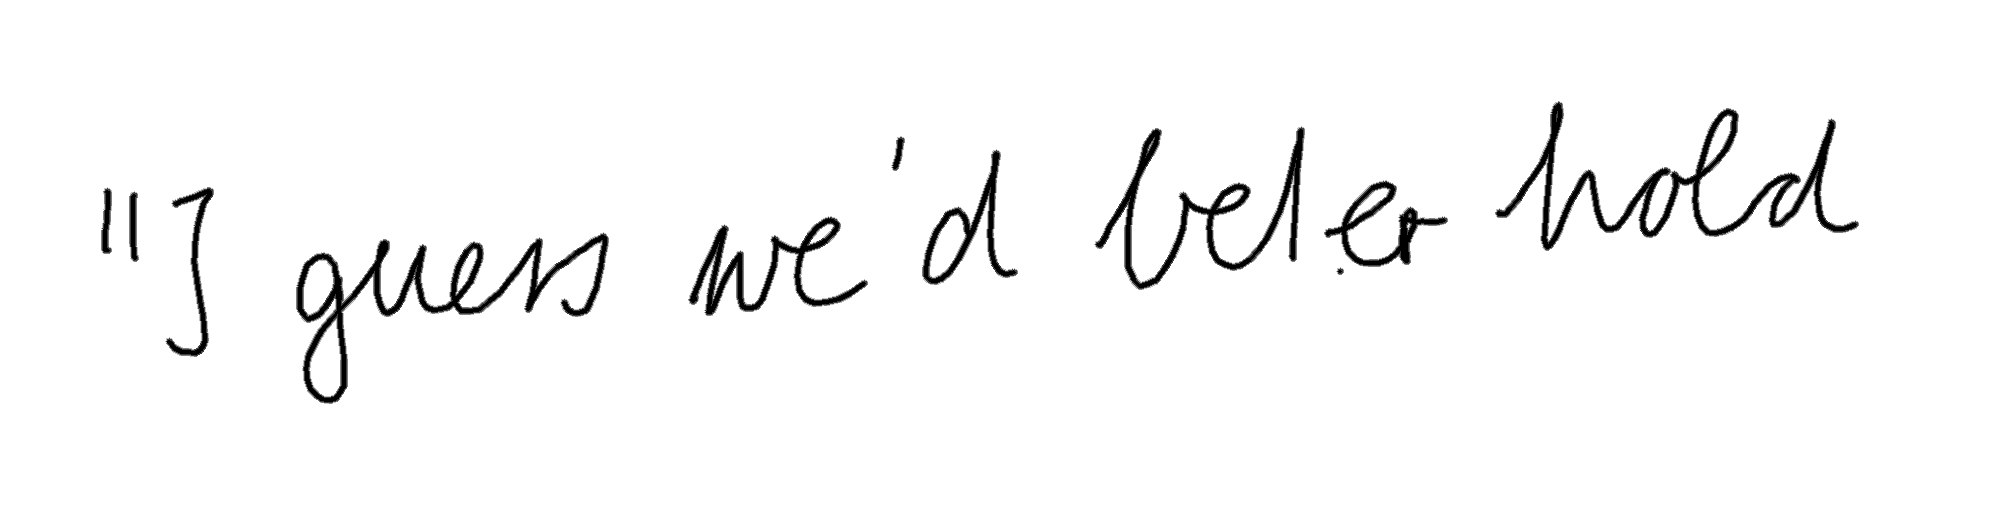 "I guess we'd beter hold